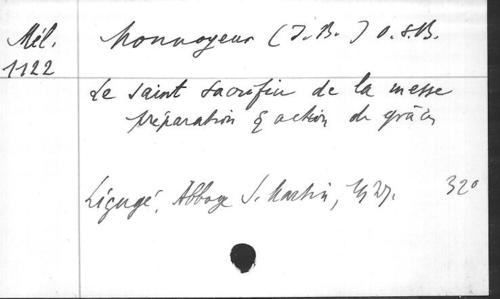 Mél. Monnoyeur (J.B.) O.S.B.
1122
Le saint sacrifice de la messe
préparation & action de grâces
Ligugé, Abbaye S. Martin, 1927. 32°